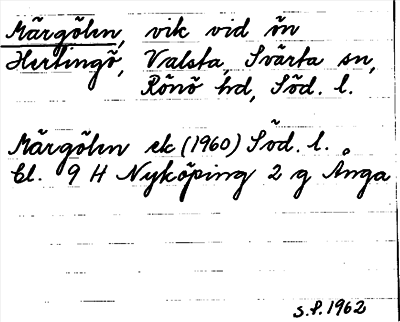 Märgöln, vik vid ön
Hertingö, Valsta, Svärta sn,
Rönö hd, Söd. l.
Märgöln ek (1960) Söd. l.
bl. 9 H Nyköping 2 g Ånga
S.P. 1962